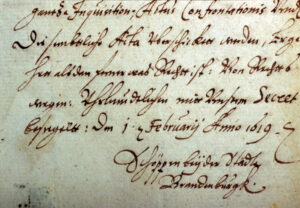 Inquisition Actus Confrontationis
Acta verschicket werden, Erge
het alß den ferner was Recht ist. Von Rechts
wegen. Uhrkundtlichen mit Unserm Secret
besiegelt. Den 1 Februarij Anno 1619.
Schöppen beider Städte
Brandenburgk.